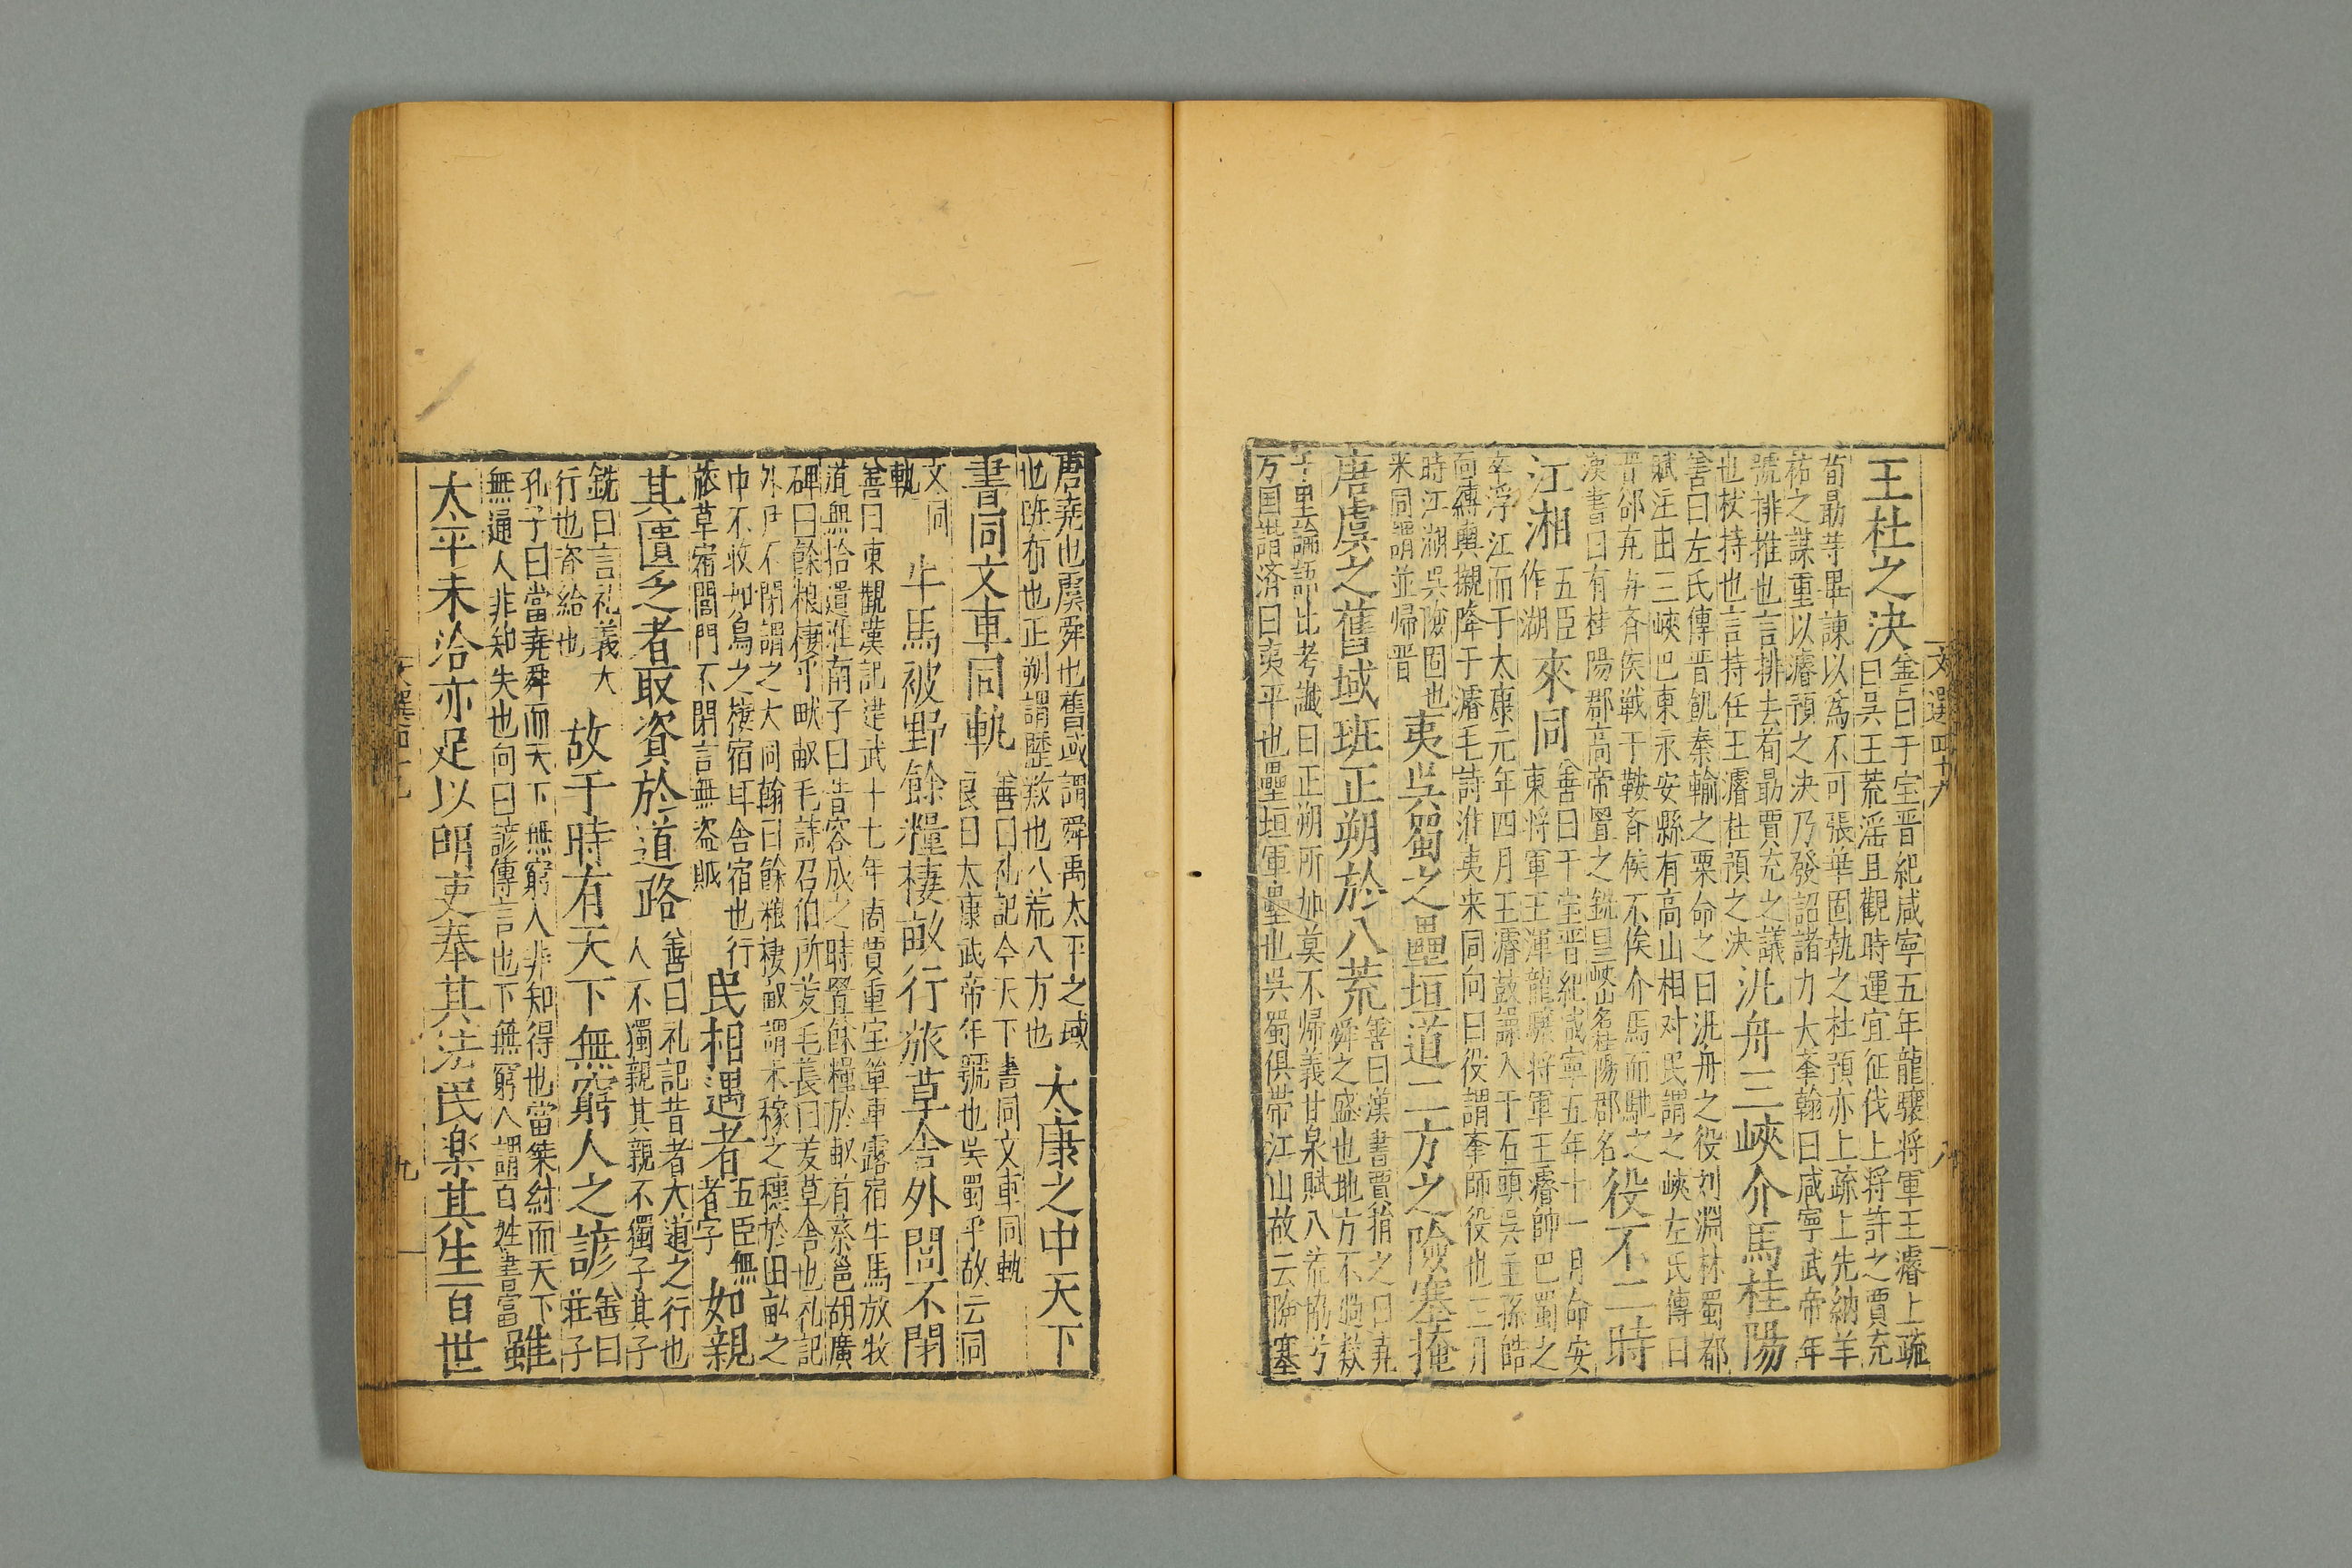 文選四十九
八
王杜之決善曰干宝晋紀咸寧五年龍驤将軍王濬上疏
曰吳王荒淫且觀時運宜征伐上将許之賈充
荀勗等畢諫以為不可張華固執之杜預亦上疏上先納羊
祜之謀重以濬預之決乃發詔諸力大舉翰曰咸寧武帝年
號排推也言排去荀勗賈充之議
也杖持也言持任王濬杜預之決
汎舟三峽介馬桂陽
善曰左氏傳晋飢秦輸之粟命之曰汎舟之役刘淵林蜀都
賦注曰三峽巴東永安縣有高山相对民謂之峽左氏傳曰
晋郤克与斉侯戦于鞍斉侯不俟介馬而馳之
漢書曰有桂陽郡高帝置之銑曰三峽山名桂陽郡名
役不二時
江湘五臣作湖來同善曰干宝晋紀咸寧五年十一月命安
東将軍王渾龍驤将軍王濬帥巴蜀之
卒浮江而下太康元年四月王濬鼓譟入于石頭吳主孫皓
面縛輿櫬降于濬毛詩淮夷来同向曰役謂率師役也三月
時江湖吳險固也
来同謂並帰晋
夷吳蜀之壘垣通二方之險塞掩
唐虞之舊域班正朔於八荒善曰漢書賈捐之曰堯
舜之盛也地方不過数
千里論語比考讖曰正朔所加莫不帰義甘泉賦八荒協兮
万国諧済曰夷平也壘垣軍壘也吳蜀俱帯江山故云險塞
唐堯也虞舜也舊域謂舜禹太平之域
也班布也正朔謂歷数也八荒八方也
太康之中天下
書同文車同軌善曰礼記今天下書同文車同軌
良曰太康武帝年號也吳蜀平故云同
文同
軌
牛馬被野餘糧棲畝行旅草舍外閭不閉
善曰東觀漢記建武十七年商賈重宝單車露宿牛馬放牧
道無拾遺淮南子曰昔容成之時置餘糧於畝有蔡邕胡廣
碑曰餘粮棲乎畎畝毛詩召伯所茇毛萇曰茇草舍也礼記
外戸不閉謂之大同翰曰餘粮棲畝謂禾稼之穗於田畝之
中不收如鳥之棲宿耳舍宿也行
旅草宿閭門不閉言無盗賊
民相遇者五臣無
者字
如親
其匱乏者取資於道路善曰礼記昔者大道之行也
人不獨親其親不獨子其子
銑曰言礼義大
行也資給也
故于時有天下無窮人之諺善曰
莊子
孔子曰當堯舜而天下無窮人非知得也當桀紂而天下
無通人非知失也向曰諺傳言也下無窮人謂百姓書富
雖
太平未洽亦足以明吏奉其法民楽其生百世
九